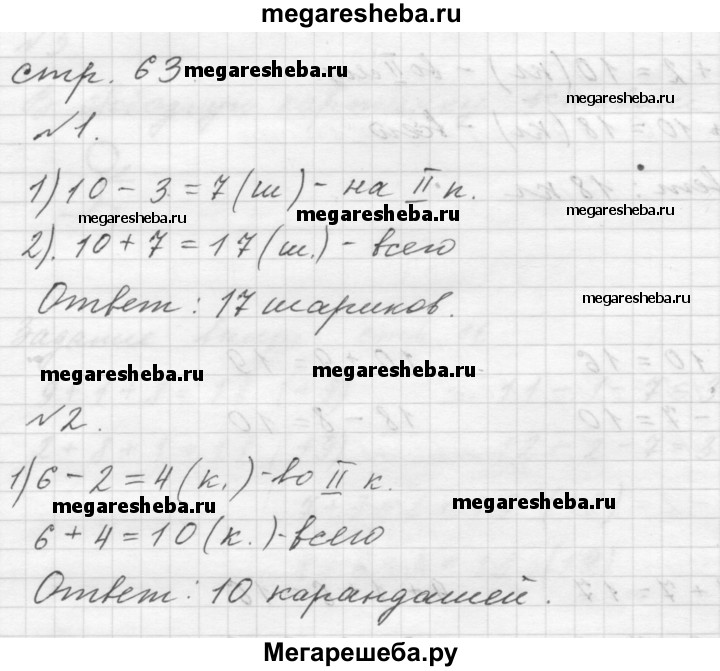 megaresheba.ru
стр. 63 megaresheba.ru
megaresheba.ru
№1.
1) 10 - 3 = 7 (ш) - на II п.
megaresheba.ru megaresheba.ru megaresheba.ru
2). 10 + 7 = 17 (ш.) - всего
Ответ: 17 шариков.
megaresheba.ru
megaresheba.ru megaresheba.ru
№2.
1) 6 - 2 = 4 (к.) - во II к.
megaresheba.ru megaresheba.ru
6 + 4 = 10 (к.) - всего
Ответ: 10 карандашей.
Мегарешеба.ру